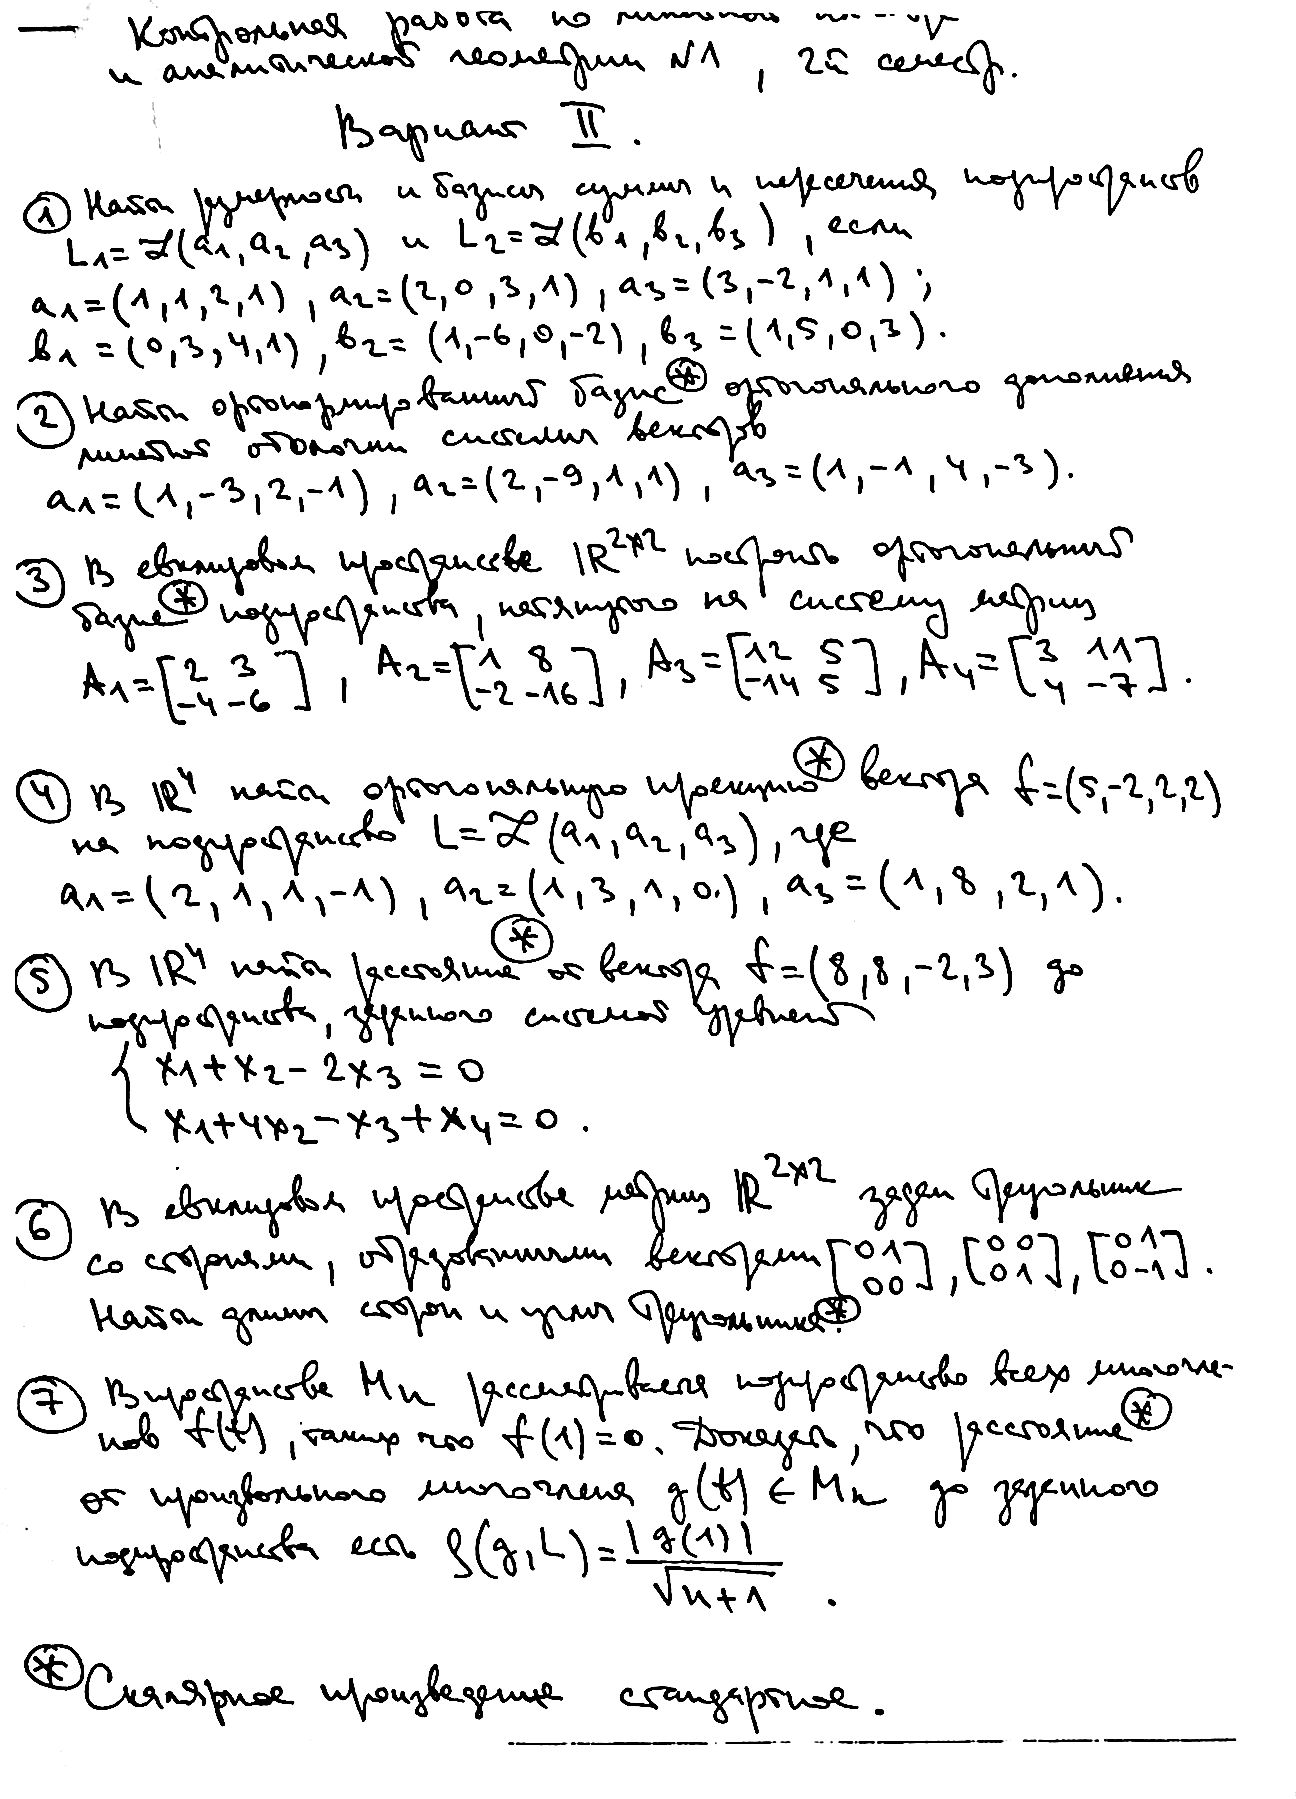 Контрольная работа по линейной
и аналитической геометрии N1, 2й семестр.
Вариант II.
1 Найти размерности и базисы суммы и пересечения подпространств
L1=ℒ(a1,a2,a3) и L2=ℒ(b1,b2,b3), если
a1=(1,1,2,1), a2=(2,0,3,1), a3=(3,-2,1,1);
b1=(0,3,4,1), b2=(1,-6,0,-2), b3=(1,5,0,3).
2 Найти ортонормированный базис* ортогонального дополнения
линейной оболочки системы векторов
a1=(1,-3,2,-1), a2=(2,-9,1,1), a3=(1,-1,4,-3).
3 В евклидовом пространстве ℝ^{2×2} построить ортогональный
базис* подпространства, натянутого на систему матриц
A1=[2 3; -4 -6], A2=[1 8; -2 -16], A3=[12 5; -14 5], A4=[3 11; 4 -7].
4 В ℝ^4 найти ортогональную проекцию* вектора f=(5,-2,2,2)
на подпространство L=ℒ(a1,a2,a3), где
a1=(2,1,1,-1), a2=(1,3,1,0), a3=(1,8,2,1).
5 В ℝ^4 найти расстояние* от вектора f=(8,8,-2,3) до
подпространства, заданного системой уравнений
{ x1+x2-2x3=0
x1+4x2-x3+x4=0.
6 В евклидовом пространстве матриц ℝ^{2×2} задан треугольник
со сторонами, образованными векторами [0 1; 0 0], [0 0; 0 1], [0 1; 0 -1].
Найти длины сторон и углы треугольника*.
7 В пространстве Mn рассматривается подпространство всех многочле-
нов f(t), таких что f(1)=0. Доказать, что расстояние*
от произвольного многочлена g(t) ∈ Mn до заданного
подпространства есть ρ(g,L)=|g(1)|/√(n+1).
* Скалярное произведение стандартное.